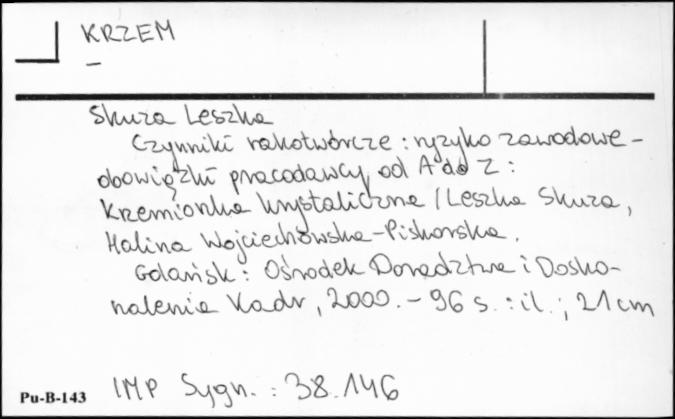 KRZEM
–
Skuza Leszka
Czynniki rakotwórcze : ryzyko zawodowe -
obowiązki pracodawcy od A do Z :
Krzemionka krystaliczna / Leszka Skuza,
Halina Wojciechowska-Piskorska.
Gdańsk : Ośrodek Doradztwa i Dosko-
nalenia Kadr, 2000. - 96 s. : il. ; 21 cm
Pu-B-143 IMP Sygn. : 38.146